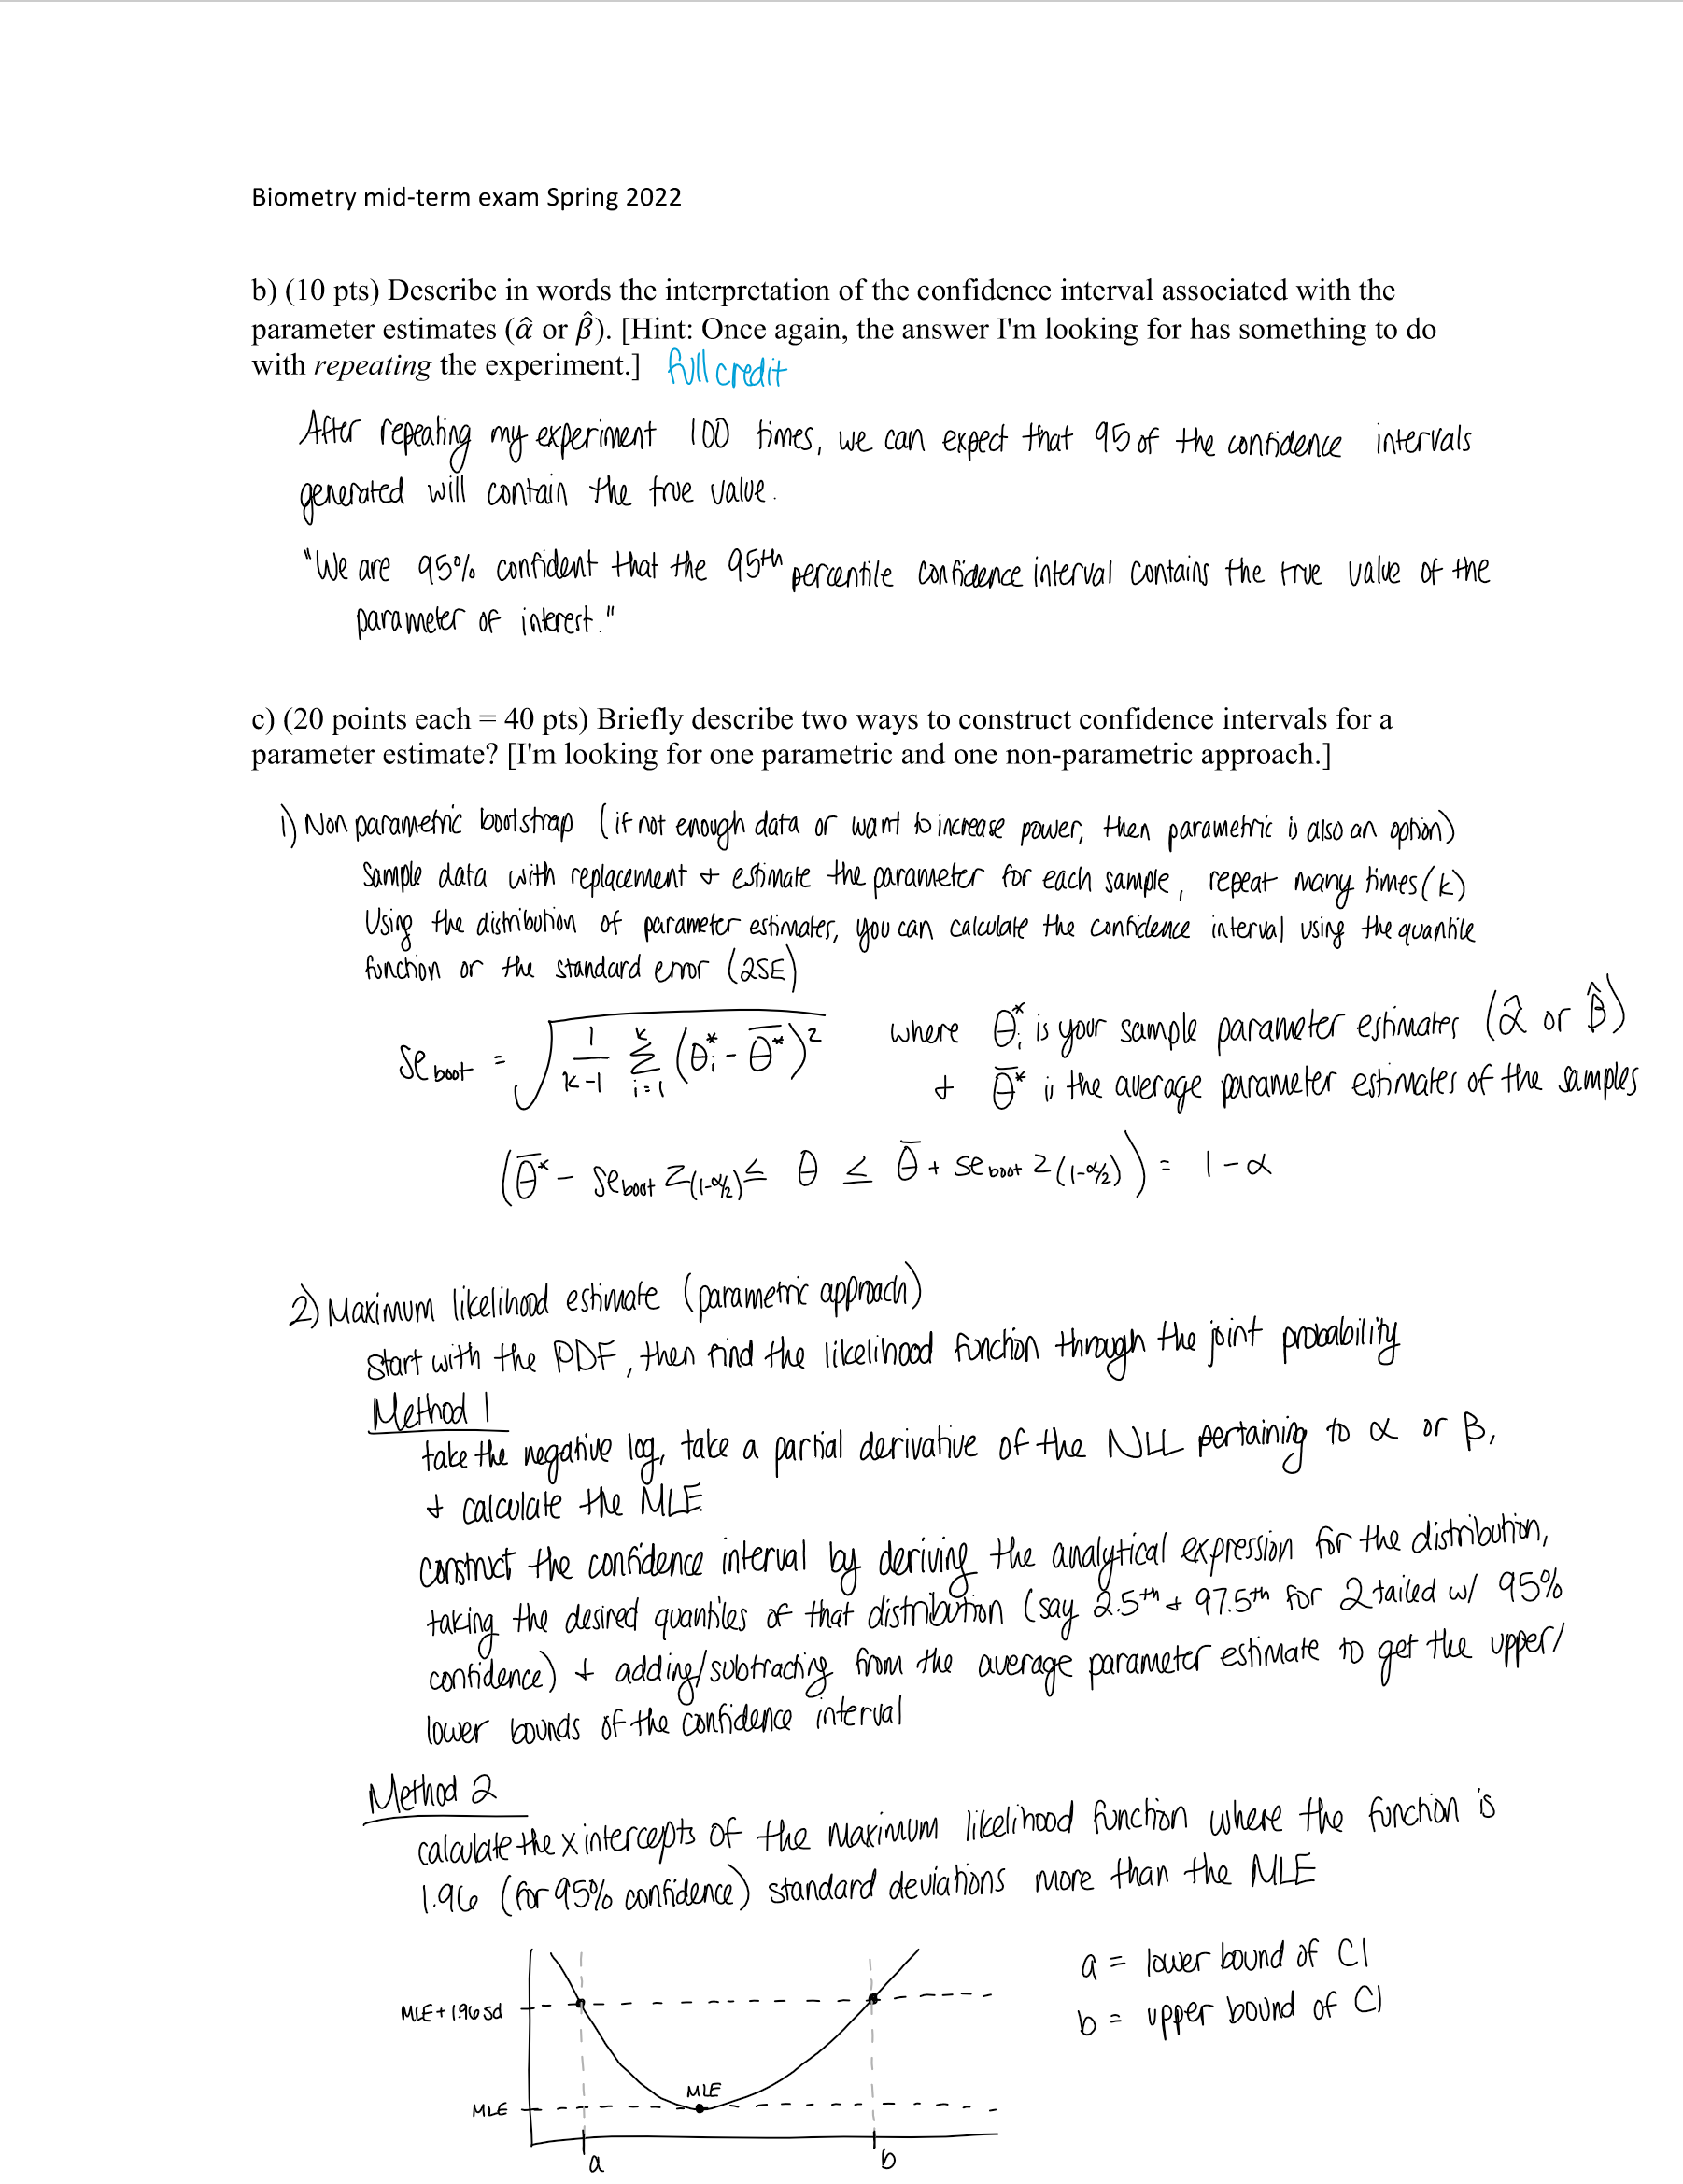 Biometry mid-term exam Spring 2022
b) (10 pts) Describe in words the interpretation of the confidence interval associated with the
parameter estimates (α̂ or β̂). [Hint: Once again, the answer I'm looking for has something to do
with repeating the experiment.] full credit
After repeating my experiment 100 times, we can expect that 95 of the confidence intervals
generated will contain the true value.
"We are 95% confident that the 95th percentile confidence interval contains the true value of the
parameter of interest."
c) (20 points each = 40 pts) Briefly describe two ways to construct confidence intervals for a
parameter estimate? [I'm looking for one parametric and one non-parametric approach.]
1) Non parametric bootstrap (if not enough data or want to increase power, then parametric is also an option)
Sample data with replacement + estimate the parameter for each sample, repeat many times (k)
Using the distribution of parameter estimates, you can calculate the confidence interval using the quantile
function or the standard error (2SE)
se boot = √( 1/(k-1) Σ_{i=1}^{k} (θᵢ* - θ̄*)² ) where θᵢ* is your sample parameter estimates (α̂ or β̂)
+ θ̄* is the average parameter estimates of the samples
(θ̄* - se boot z(1-α/2) ≤ θ ≤ θ̄ + se boot z(1-α/2)) = 1-α
2) Maximum likelihood estimate (parametric approach)
start with the PDF, then find the likelihood function through the joint probability
Method 1
take the negative log, take a partial derivative of the NLL pertaining to α or β,
+ calculate the MLE
construct the confidence interval by deriving the analytical expression for the distribution,
taking the desired quantiles of that distribution (say 2.5th + 97.5th for 2 tailed w/ 95%
confidence) + adding/subtracting from the average parameter estimate to get the upper/
lower bounds of the confidence interval
Method 2
calculate the x intercepts of the maximum likelihood function where the function is
1.96 (for 95% confidence) standard deviations more than the MLE
a = lower bound of CI
MLE + 1.96 sd
b = upper bound of CI
MLE
MLE
a b